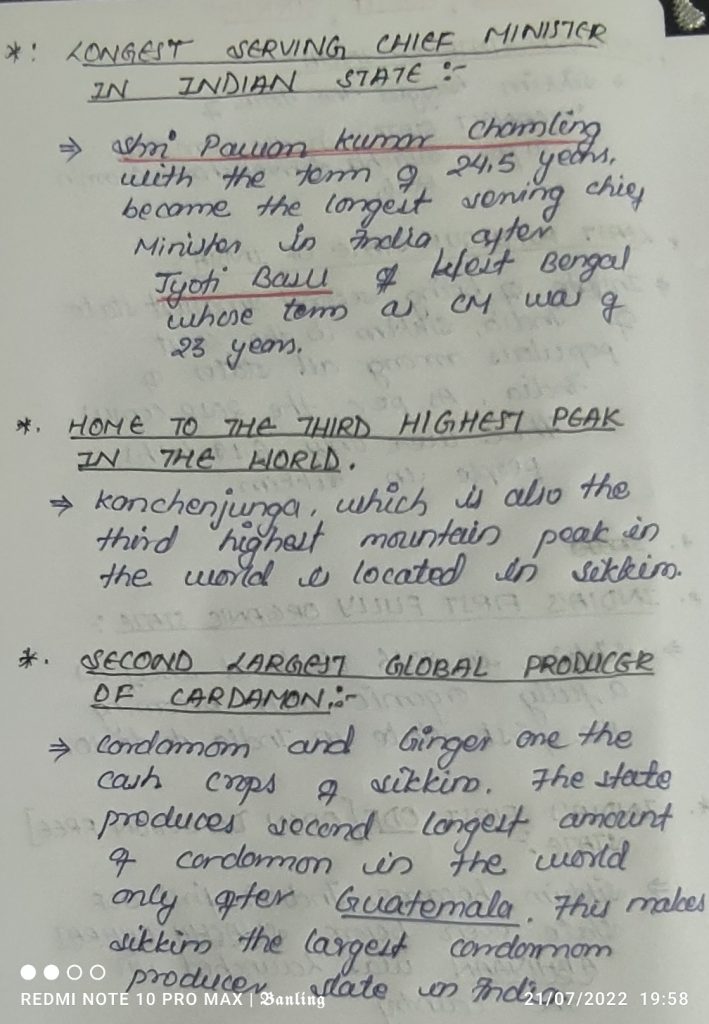 *: LONGEST SERVING CHIEF MINISTER
IN INDIAN STATE :-
⇒ Shri Pawan Kumar Chamling
with the term of 24.5 years,
became the longest serving chief
Minister in India after
Jyoti Basu of West Bengal
whose term as CM was of
23 years.
*. HOME TO THE THIRD HIGHEST PEAK
IN THE WORLD.
⇒ Kanchenjunga, which is also the
third highest mountain peak in
the world is located in Sikkim.
*. SECOND LARGEST GLOBAL PRODUCER
OF CARDAMON.:-
⇒ Cardamom and Ginger are the
cash crops of Sikkim. The state
produces second largest amount
of cardammon in the world
only after Guatemala. This makes
Sikkim the largest cardammom
producer state in India
REDMI NOTE 10 PRO MAX | Banling
21/07/2022 19:58